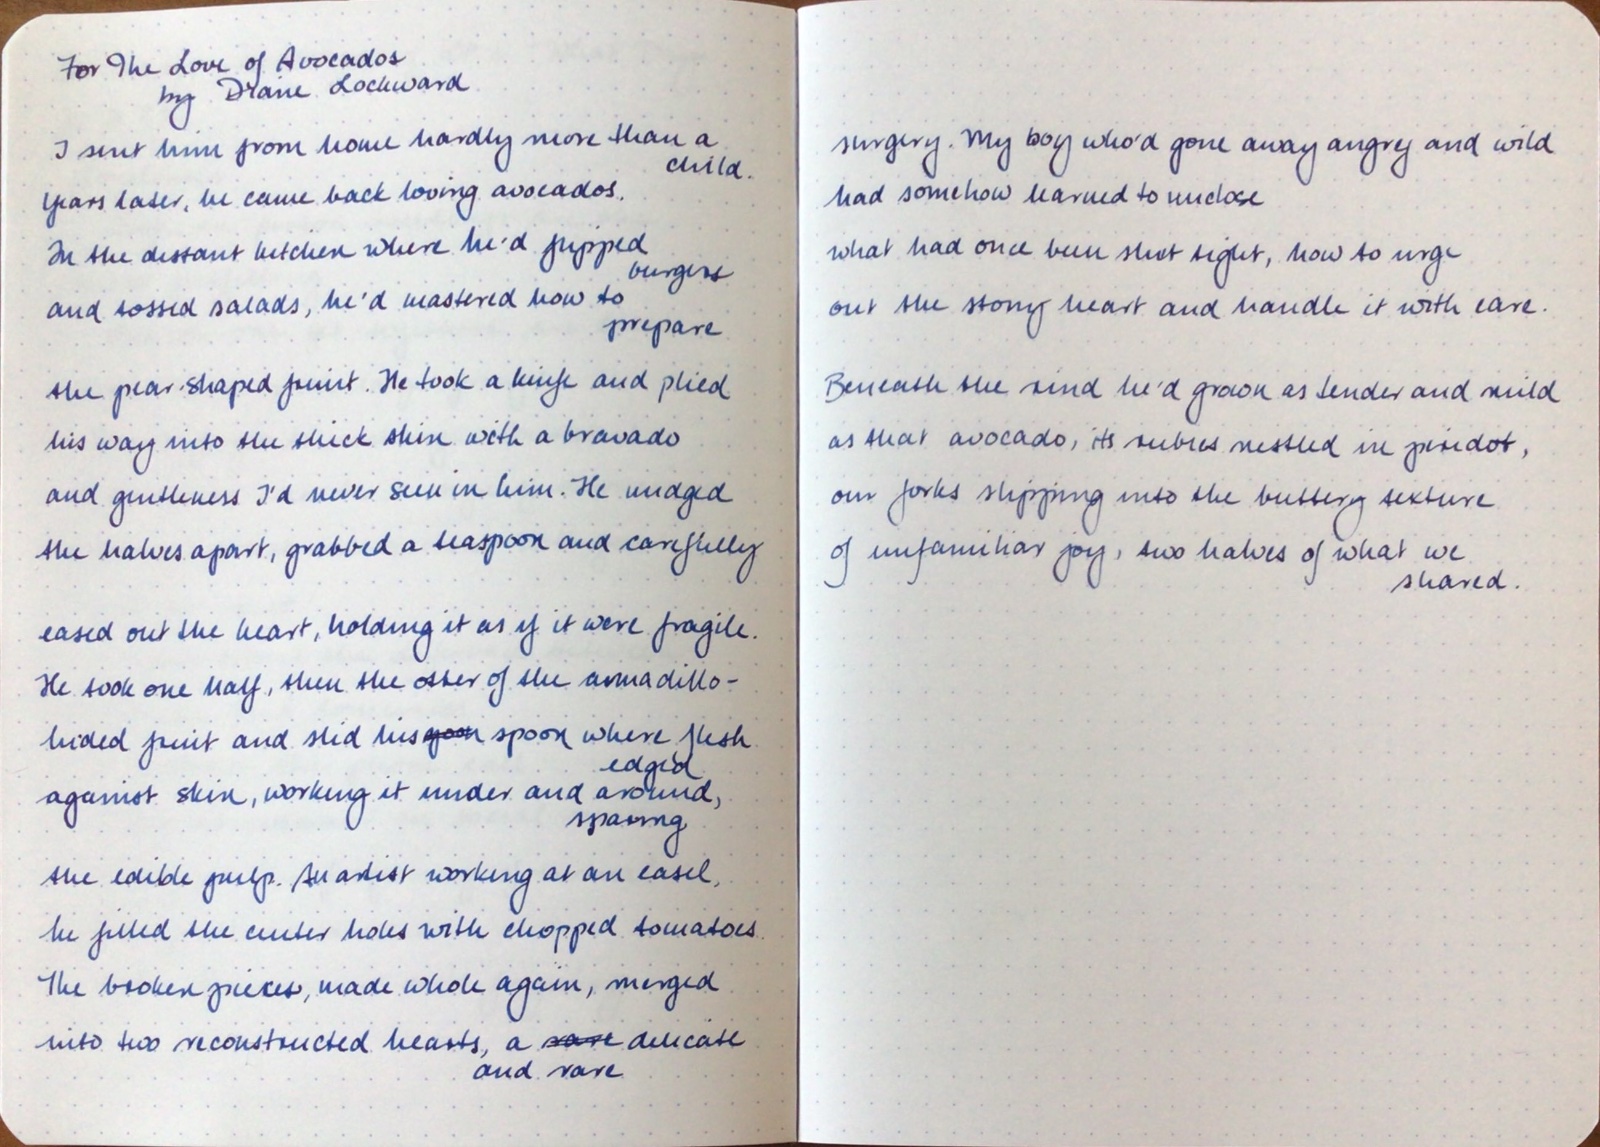 For The Love of Avocados
by Diane Lockward
I sent him from home hardly more than a
child.
Years later, he came back loving avocados.
In the distant kitchen where he'd flipped
burgers
and tossed salads, he'd mastered how to
prepare
the pear-shaped fruit. He took a knife and plied
his way into the thick skin with a bravado
and gentleness I'd never seen in him. He nudged
the halves apart, grabbed a teaspoon and carefully
eased out the heart, holding it as if it were fragile.
He took one half, then the other of the armadillo-
hided fruit and slid his spoon where flesh
edged
against skin, working it under and around,
sparing
the edible pulp. An artist working at an easel,
he filled the center holes with chopped tomatoes.
The broken pieces, made whole again, merged
into two reconstructed hearts, a rare delicate
and rare
surgery. My boy who'd gone away angry and wild
had somehow learned to unclose
what had once been shut tight, how to urge
out the stony heart and handle it with care.
Beneath the rind he'd grown as tender and mild
as that avocado, its rubies nestled in peridot,
our forks slipping into the buttery texture
of unfamiliar joy, two halves of what we
shared.